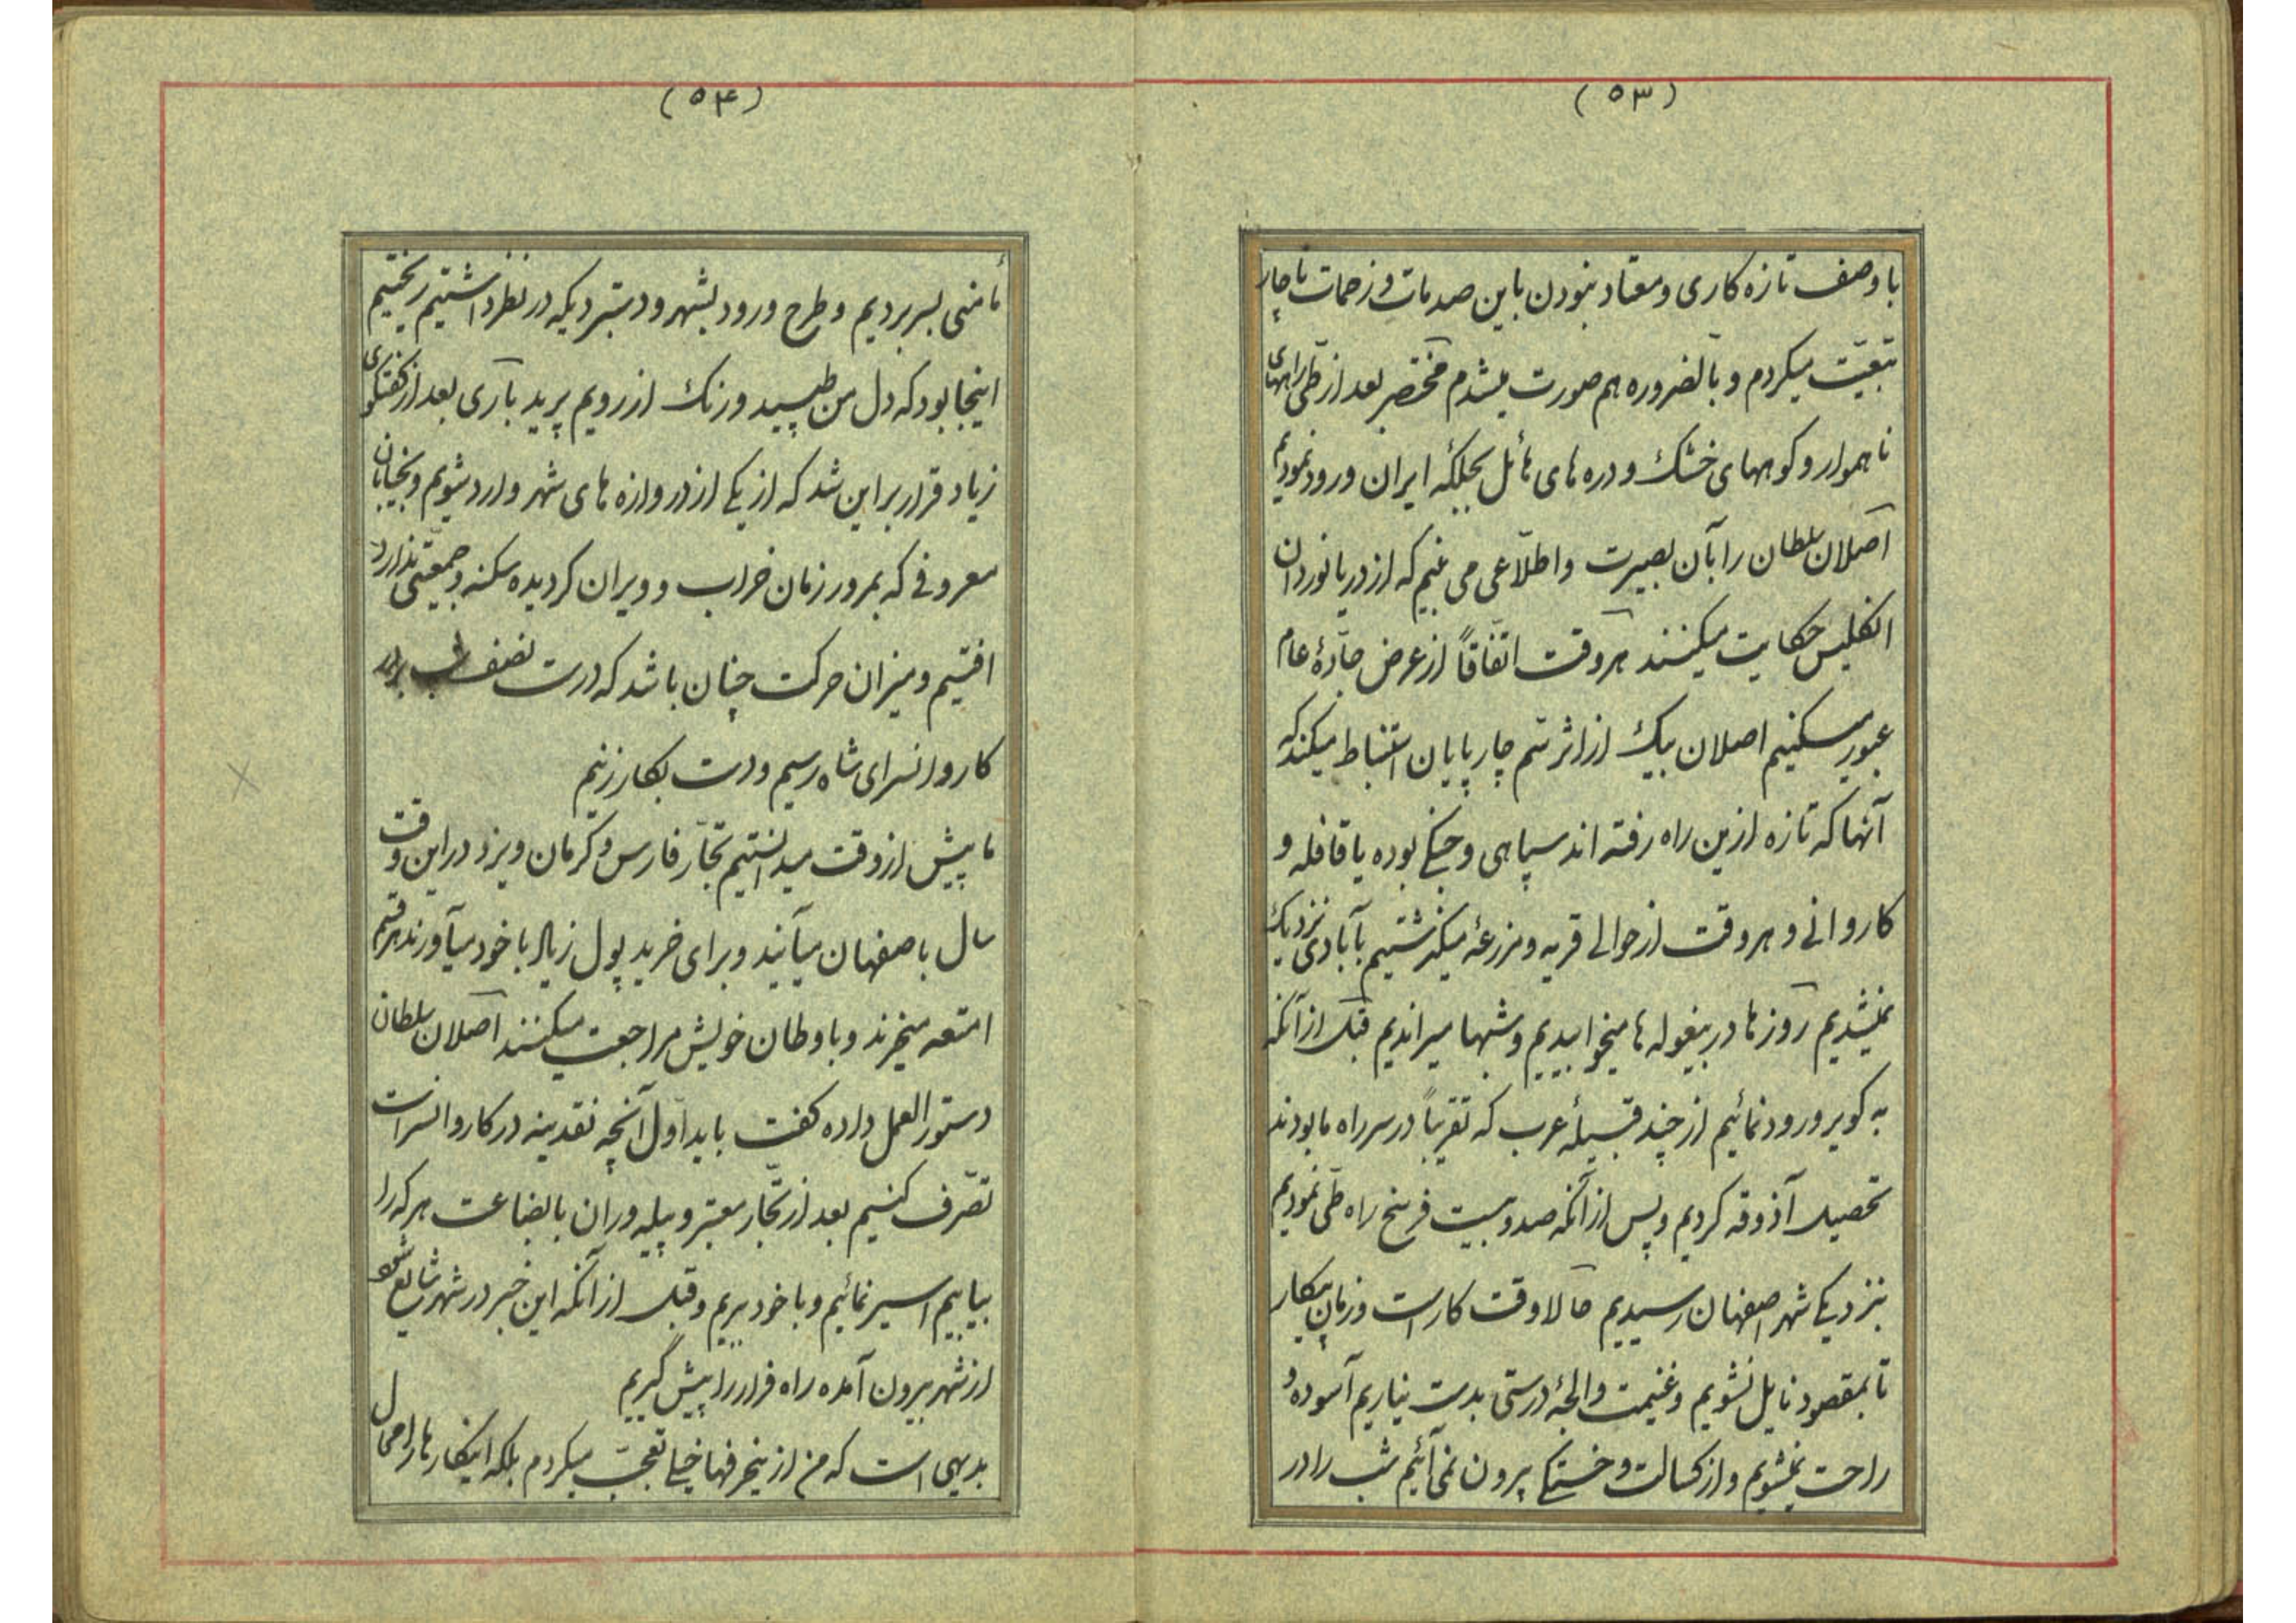 (۵۳)
با وصف تازه کاری و معتاد نبودن باین صدمات و زحمات ناچار
تبعیّت میکردم و بالضروره هم صورت میشدم مختصر بعد از طی راههای
ناهموار و کوههای خشک و دره های هائل بجلگه ایران ورود نمودیم
اصلان سلطان را بآن بصیرت و اطلاعی می بینم که از دریا نوردان
انگلیس حکایت میکنند هر وقت اتّفاقاً از عرض جادّهٔ عام
عبور میکنیم اصلان بیک از اثر سم چارپایان استنباط میکند که
آنها که تازه ازین راه رفته اند سپاهی و جنگی بوده یا قافله و
کاروانی و هر وقت از حوالی قریه و مزرعهٔ میگذشتیم بآبادی نزدیک
نمیشدیم روزها در بیغوله ها میخوابیدیم و شبها میراندیم قبل از آنکه
به کویر ورود نمائیم از چند قبیلهٔ عرب که تقریباً در سر راه ما بودند
تحصیل آذوقه کردیم و پس از آنکه صد و بیست فرسخ راه طّی نمودیم
بنزدیکی شهر اصفهان رسیدیم حالا وقت کار است و زمان پیکار
تا بمقصود نایل نشویم و غنیمت و الجهٔ درستی بدست نیاریم آسوده و
راحت نمیشویم و از کسالت و خستگی بیرون نمی آئیم شب را در
(۵۴)
مأمنی بسر بردیم و طرح ورود بشهر و دستبردیکه در نظر داشتیم ریختیم
اینجا بود که دل من طپید و رنک از رویم پرید باری بعد از گفتگوی
زیاد قرار بر این شد که از یکی از دروازه های شهر وارد شویم و بخیابان
معروفی که بمرور زمان خراب و ویران کردیده سکنه و جمعّیتی ندارد
افتیم و میزان حرکت چنان باشد که درست نصف شب بدر
کاروانسرای شاه رسیم و دست بکار زنیم
ما پیش از وقت میدانستیم تجّار فارس و کرمان و یزد در این وقت
سال باصفهان میآیند و برای خرید پول زیاد با خود میآورند هر قسم
امتعه میخرند و باوطان خویش مراجعت میکنند اصلان سلطان
دستور العمل داده کفت باید اوّل آنچه نقدینه در کاروانسراست
تصّرف کنیم بعد از تجّار معتبر و پیله وران با بضاعت هر که را
بیابیم اسیر نمائیم و با خود بریم و قبل از آنکه این خبر در شهر شایع شود
از شهر بیرون آمده راه فرار را پیش گیریم
بدیهی است که من ازینحرفها خیلی تعجّب میکردم بلکه اینکارها را محال